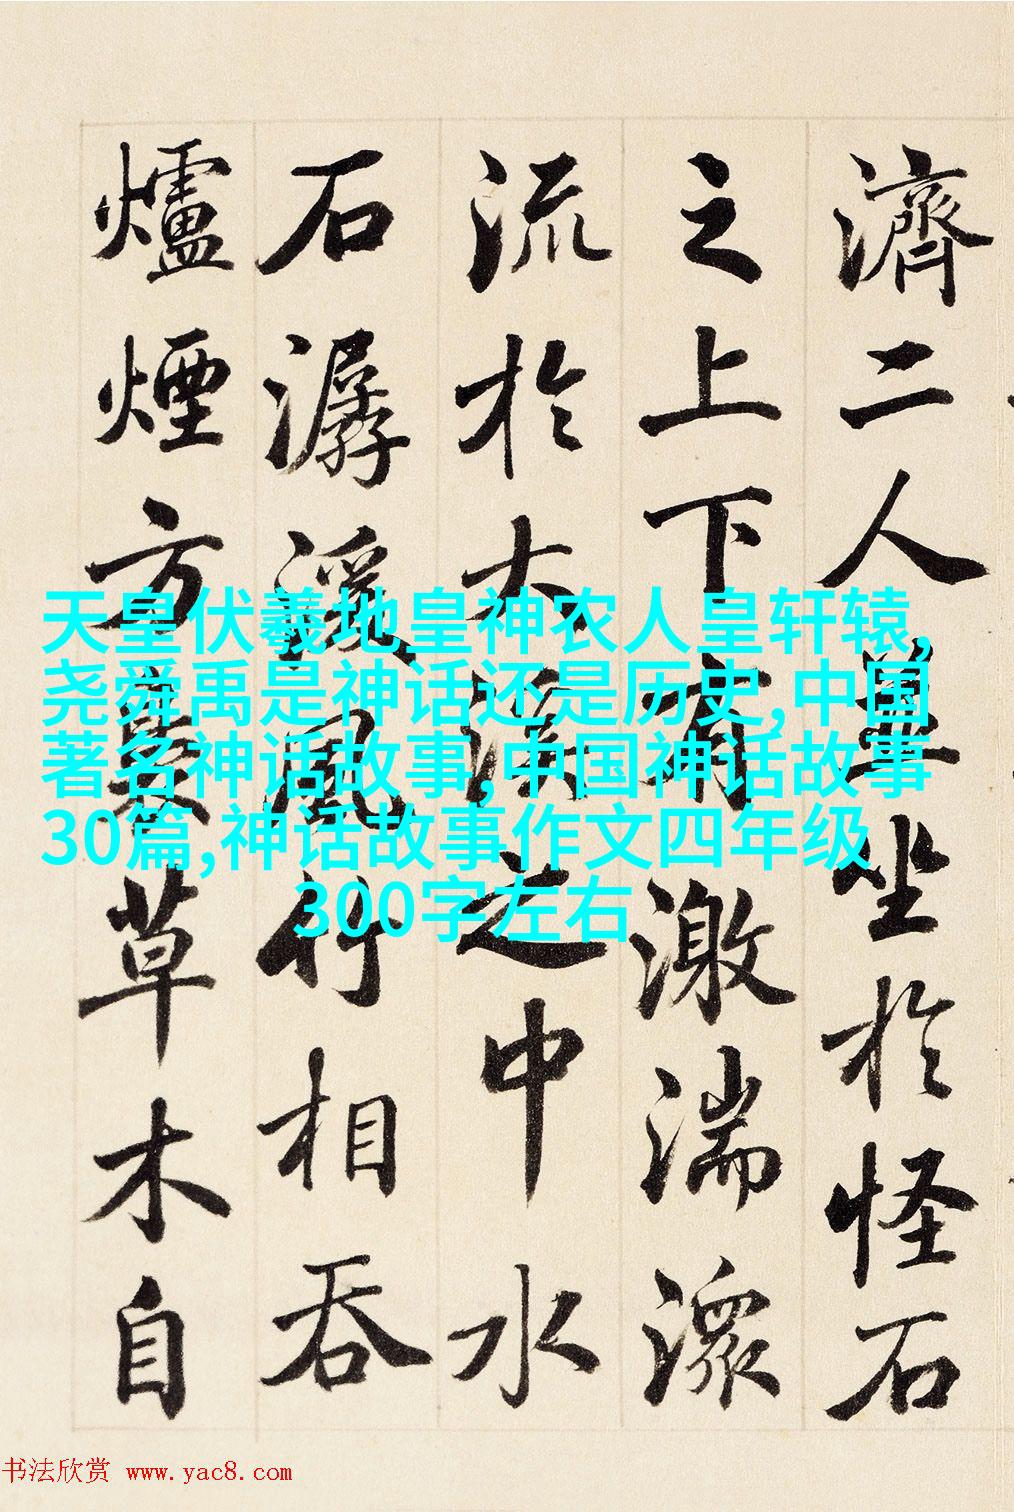 濟二人並坐於怪石
之上下有激湍潨
流於大溪之中水
石潺湲風竹相吞
爐煙方裊草木自
天皇伏羲地皇神农人皇轩辕,
尧舜禹是神话还是历史,中国
著名神话故事,中国神话故事
30篇,神话故事作文四年级
300字左右
书法欣赏 www.yac8.com